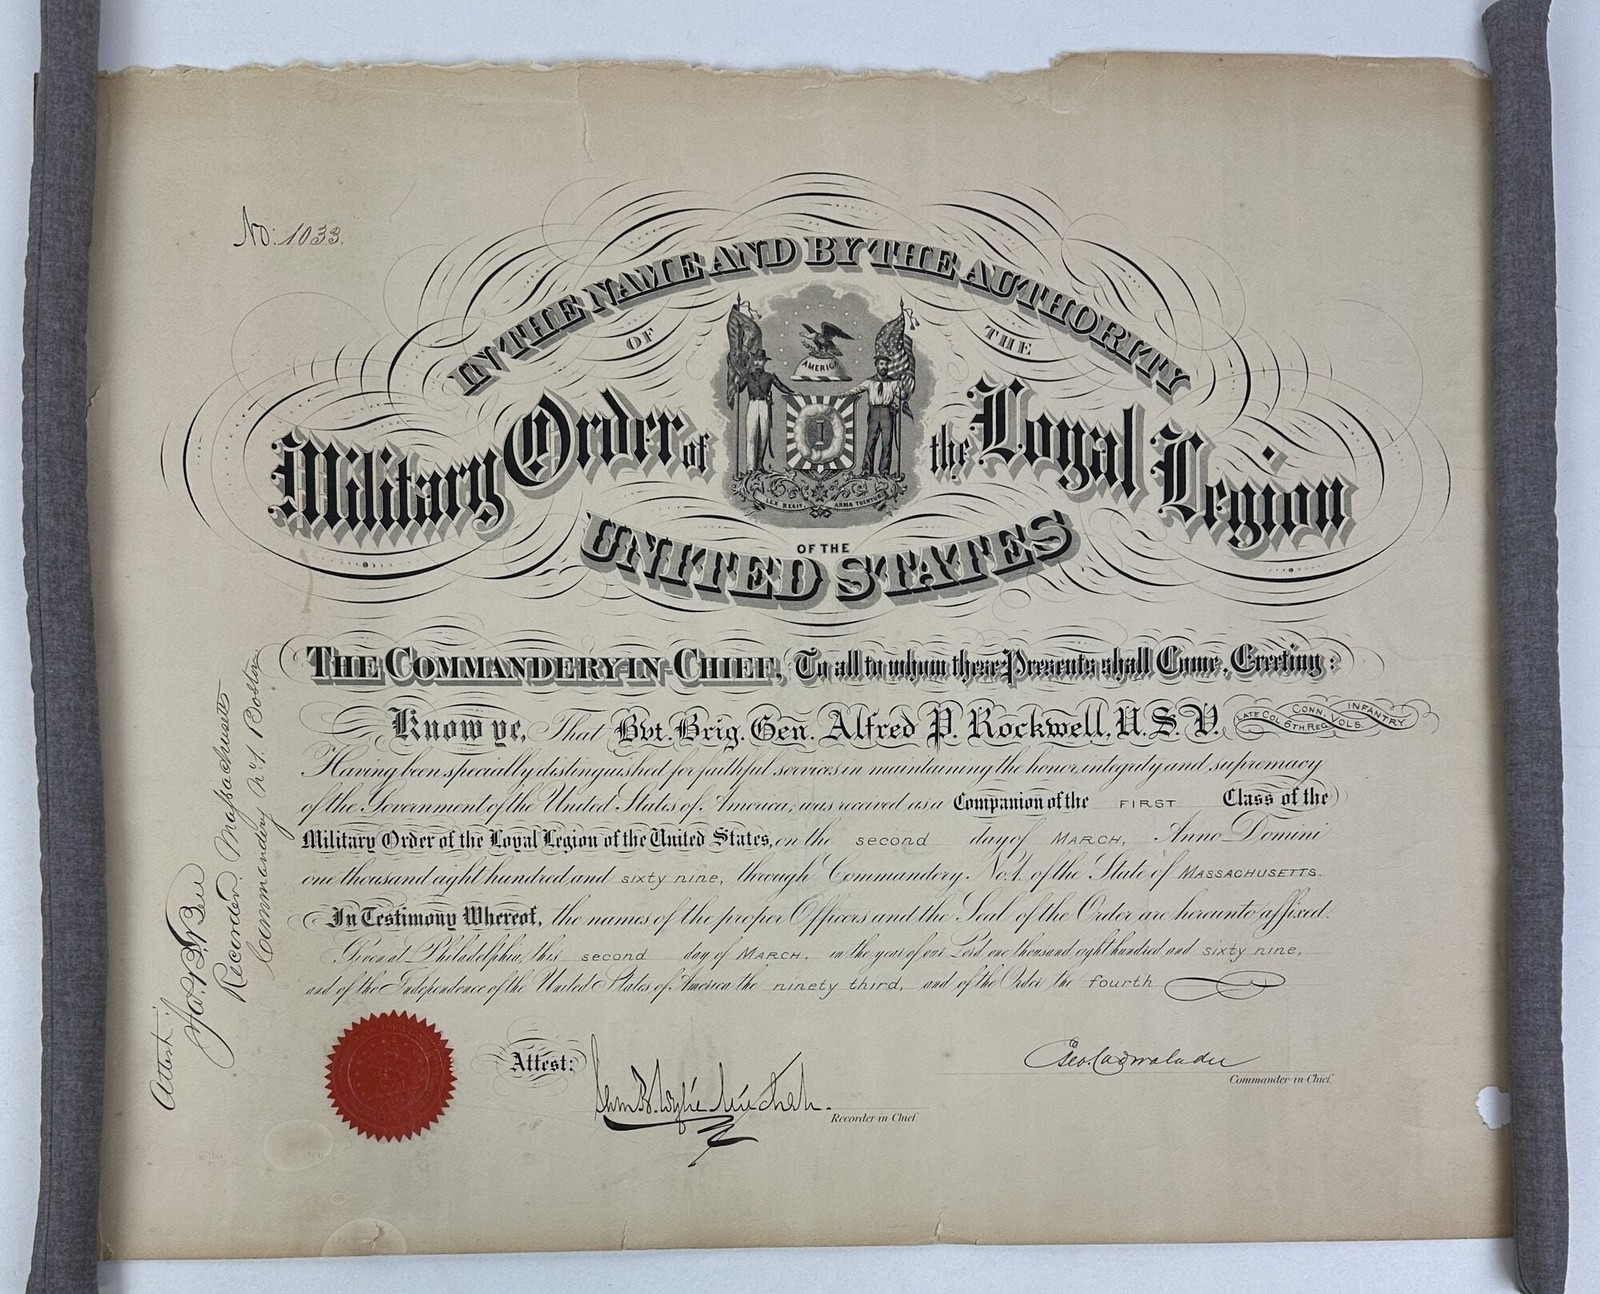 No. 1033.
IN THE NAME AND BY THE AUTHORITY
OF THE
AMERICA
Military Order of the Loyal Legion
LEX REGIT, ARMA TUENTUR
OF THE
UNITED STATES
THE COMMANDERY-IN-CHIEF, To all to whom these Presents shall Come, Greeting:
Know ye, That Bvt. Brig. Gen. Alfred P. Rockwell, U.S.V. LATE COL. 6TH REG. CONN. VOLS. INFANTRY
Having been specially distinguished for faithful services in maintaining the honor, integrity and supremacy
of the Government of the United States of America, was received as a Companion of the FIRST Class of the
Military Order of the Loyal Legion of the United States, on the second day of MARCH, Anno Domini
one thousand eight hundred and sixty nine, through Commandery No. 1. of the State of MASSACHUSETTS.
In Testimony Whereof, the names of the proper Officers and the Seal of the Order are hereunto affixed.
Given at Philadelphia, this second day of MARCH, in the year of our Lord one thousand eight hundred and sixty nine,
and of the Independence of the United States of America the ninety third, and of the Order the fourth
Attest:
Recorder-in-Chief
Geo. Cadwalader
Commander-in-Chief.
Attest;
Recorder. Massachusetts
Commandery No. 1. Boston